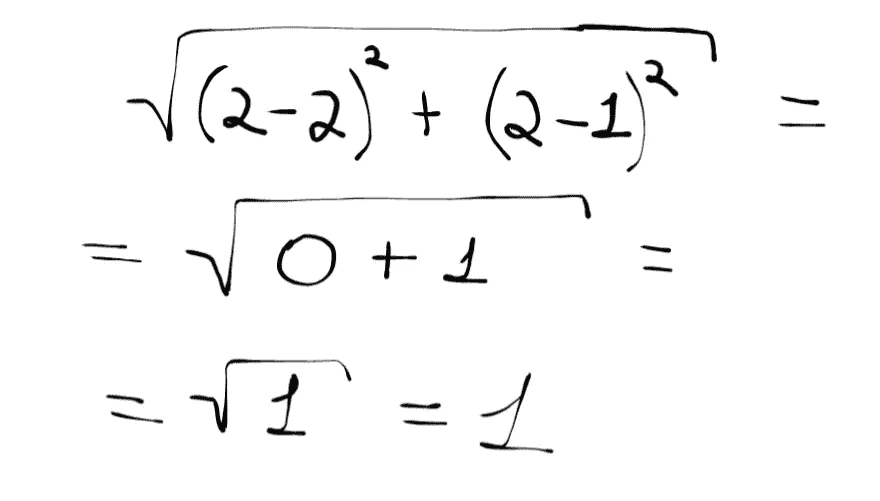 √((2-2)² + (2-1)²) =
= √(0 + 1) =
= √1 = 1